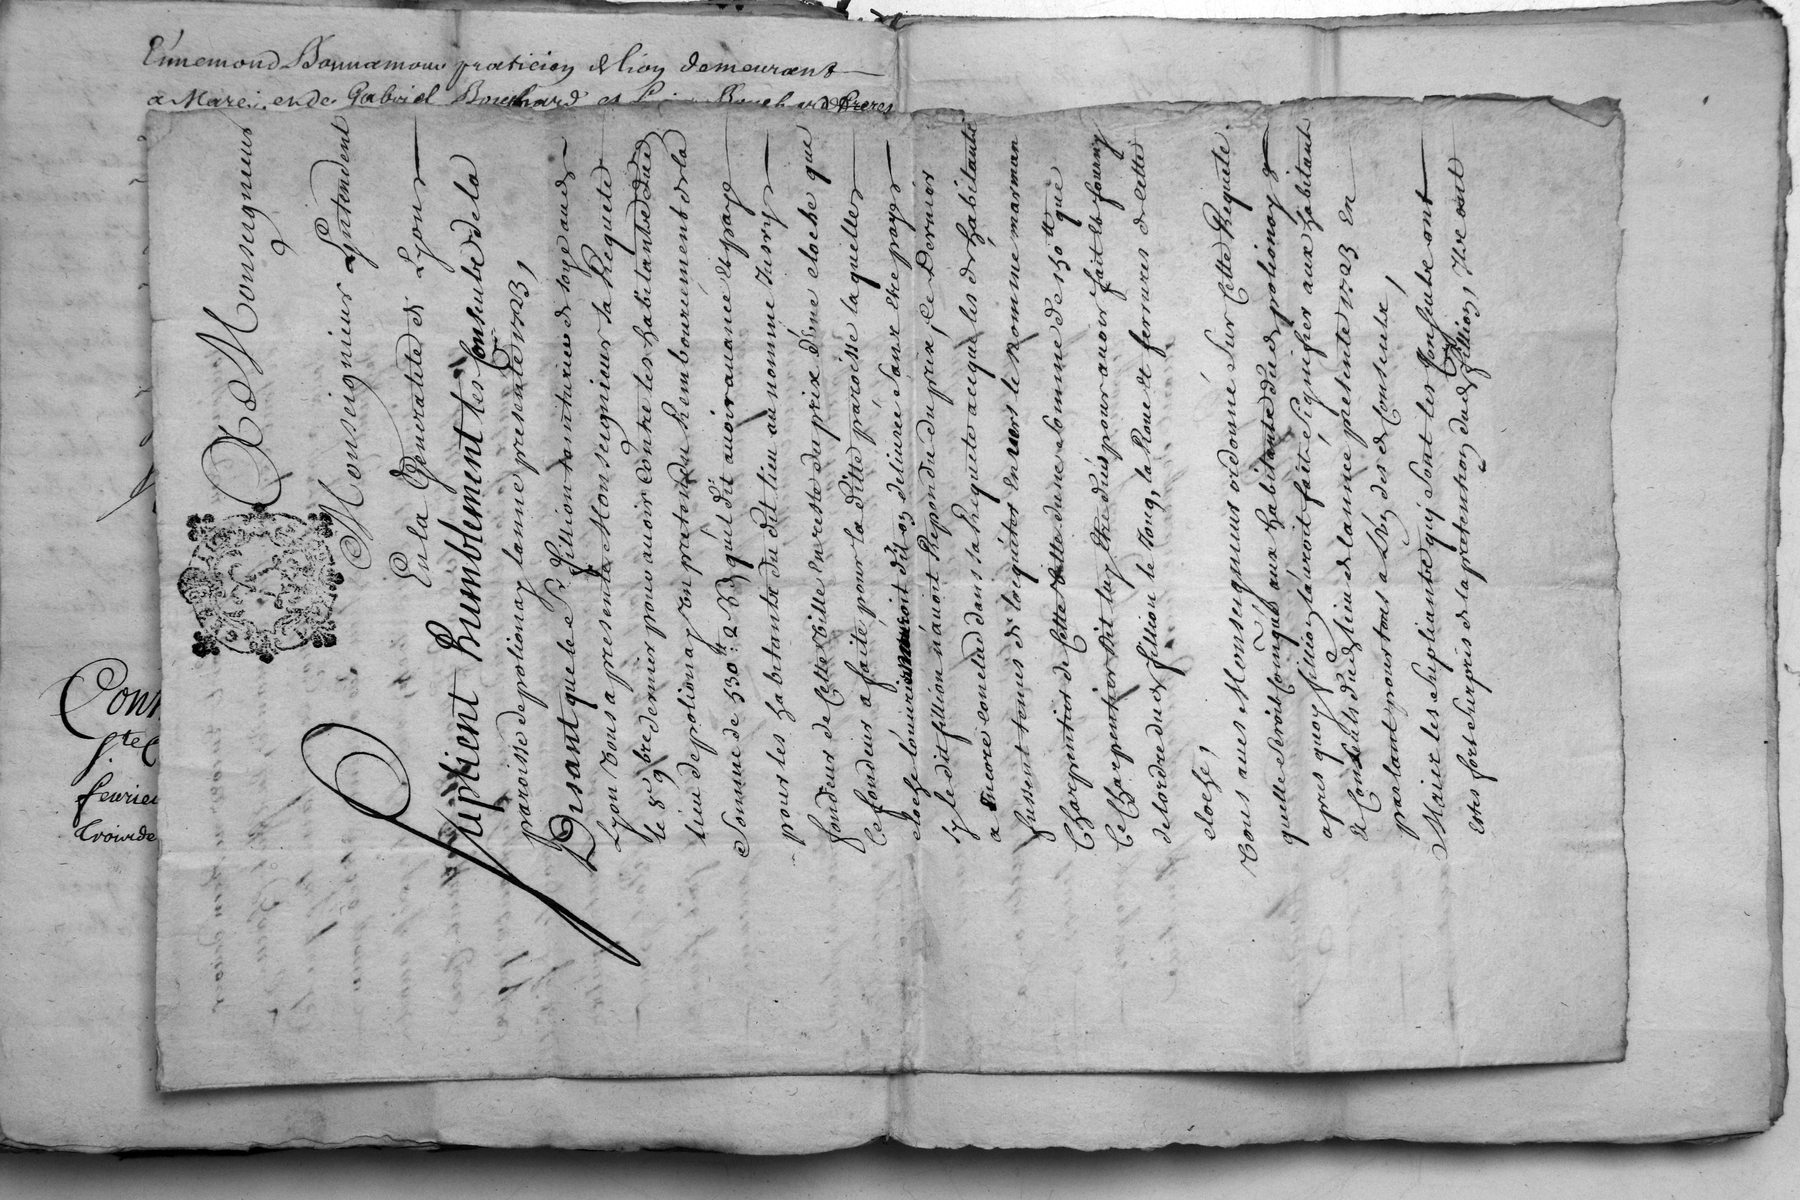 Ennemond Bonnamour praticien de lion demeurant
a Marci, en de Gabriel Bouchard et Bouchard freres
Conn
Ste C
fevrier
trois de
A Monseigneur
Monseigneur Lintendent
En la Generalité de Lyon
Suplient humblement les Consulz de la
paroisse de polionay lanné presante 1723,
Disant que le Sr. fillion tainturier de soye au dt
Lyon vous a presenté Monseigneur sa Requete
le 8e 9bre dernier pour avoir contre les habitants dud
lieu de polionay un pretendu Rembourument de la
Somme de 530tt qu'el dit avoir avancé et payé
pour les habitants du dit lieu au nommé Jury
fondeur de Cette Ville En reste du prix d'une cloche que
Ce fondeur a faite pour la ditte paroisse laquelle
cloche l'ouvrier n'auroit dit on delivré Sans etre payé
sy le dit fillion n'avoit Repondu du prix, Ce Dernier
a Encore conclud dans sa Requete a ceque les dt habitants
fussent tenus de lacquiter Envers le nommé marman
Charpentier de Cette Ville dune Somme de 130tt que
Ce Charpentier dit luy etre dus pour avoir fait et fourny
de lordre dud fillion le Joug, la Roue et ferrures de Cette
cloche,
Vous aves Monseigneur ordonné Sur Cette Requete
quelle Seroit Comuniqué aux habitants dud polionay
apres quoy fillion l'auroit fait Signifier aux habitant
& Consuls dud lieu de lannée presente 1723 En
parlant pour tous a L'un des dt Consuls,
Mais les Supliants quy Sont les Consuls ont
Estes fort Surpris de la pretention dud Sr fillion, Ilz ont